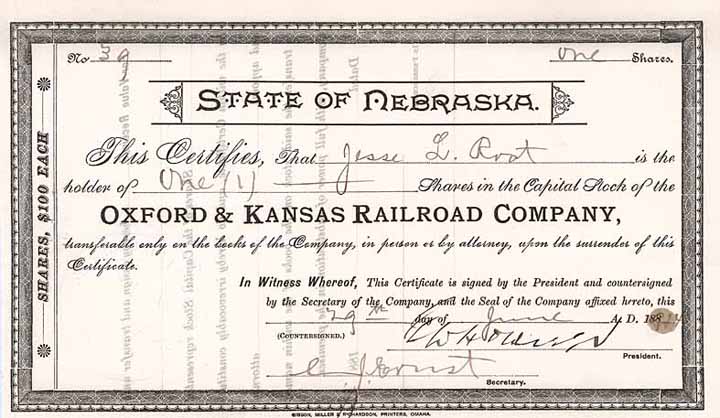 No 39 One Shares.
STATE OF NEBRASKA.
This Certifies, That Jesse L. Root is the
holder of One (1) Shares in the Capital Stock of the
OXFORD & KANSAS RAILROAD COMPANY,
transferable only on the books of the Company, in person or by attorney, upon the surrender of this
Certificate.
In Witness Whereof, This Certificate is signed by the President and countersigned
by the Secretary of the Company, and the Seal of the Company affixed hereto, this
29th day of June A.D. 188
(COUNTERSIGNED.)
President.
C. J. Ernst
Secretary.
SHARES, $100 EACH
GIBSON, MILLER & RICHARDSON, PRINTERS, OMAHA.